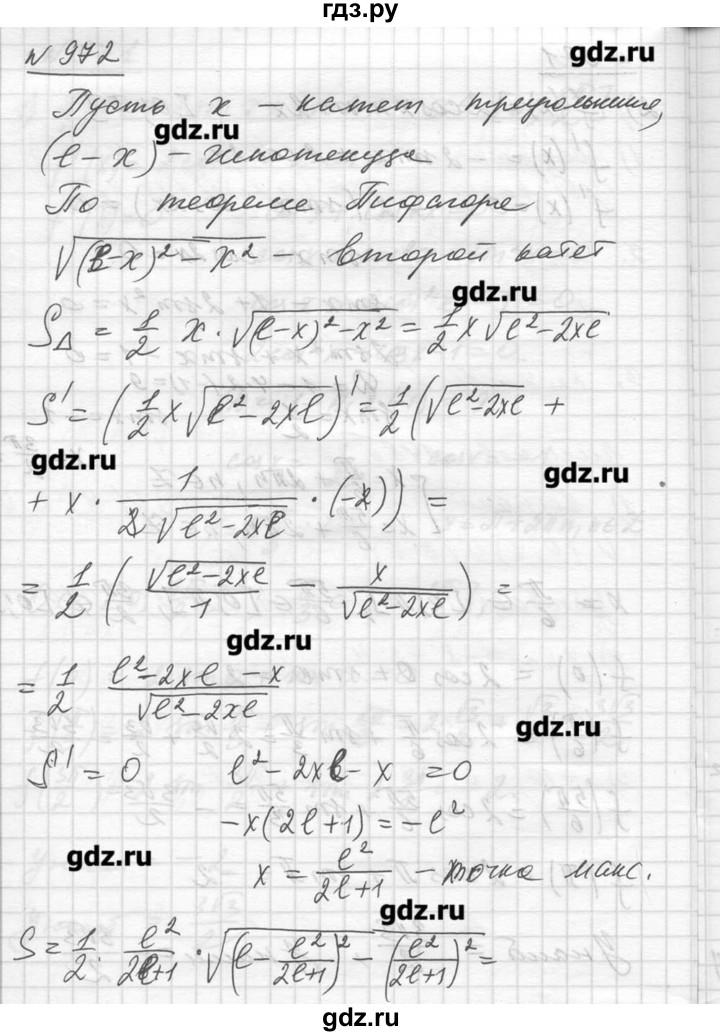 гдз.ру
№ 972
gdz.ru
Пусть x – катет треугольника,
gdz.ru
(l – x) – гипотенуза
По теореме Пифагора
√((l-x)² – x²) – второй катет
gdz.ru
S△ = 1/2 x · √((l-x)² - x²) = 1/2 x √(l² - 2xl)
S' = (1/2 x √(l² - 2xl))' = 1/2 (√(l² - 2xl) +
gdz.ru
gdz.ru
+ x · 1/(2√(l² - 2xl)) · (-2)) =
= 1/2 (√(l² - 2xl)/1 - x/√(l² - 2xl)) =
gdz.ru
= 1/2 (l² - 2xl - x)/√(l² - 2xl)
gdz.ru
S' = 0 l² - 2xl - x = 0
-x(2l+1) = -l²
gdz.ru
x = l²/(2l+1) – точка макс.
gdz.ru
S = 1/2 · l²/(2l+1) · √((l - l²/(2l+1))² - (l²/(2l+1))²) =
gdz.ru